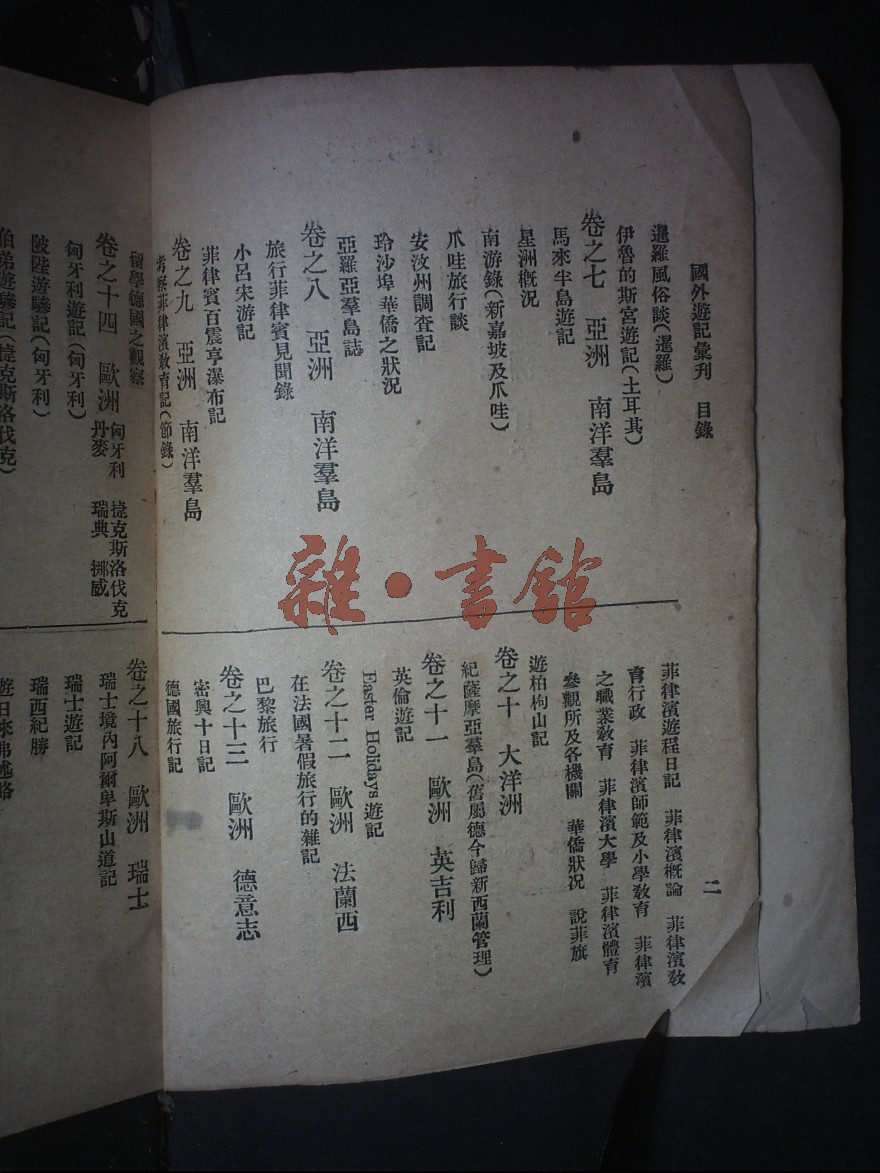 國外遊記彙刊　目錄
二
暹羅風俗談(暹羅)
伊魯的斯宮遊記(土耳其)
卷之七　亞洲　南洋羣島
馬來半島遊記
星洲概况
南游錄(新嘉坡及爪哇)
爪哇旅行談
安汶州調查記
玲沙埠華僑之狀况
亞羅亞羣島誌
卷之八　亞洲　南洋羣島
旅行菲律賓見聞錄
小呂宋游記
菲律賓百震亨瀑布記
卷之九　亞洲　南洋羣島
考察菲律濱教育記(節錄)
菲律濱遊程日記　菲律濱概論　菲律濱敎
育行政　菲律濱師範及小學敎育　菲律濱
之職業敎育　菲律濱大學　菲律濱體育
參觀所及各機關　華僑狀况　說菲旗
遊柏枸山記
卷之十　大洋洲
紀薩摩亞羣島(舊屬德今歸新西蘭管理)
卷之十一　歐洲　英吉利
英倫遊記
Easter Holidays 遊記
卷之十二　歐洲　法蘭西
在法國暑假旅行的雜記
巴黎旅行
卷之十三　歐洲　德意志
密興十日記
德國旅行記
留學德國之觀察
卷之十四　歐洲　匈牙利　捷克斯洛伐克
丹麥　瑞典　挪威
匈牙利遊記(匈牙利)
陂陸遊驂記(匈牙利)
伯弟遊驂記(捷克斯洛伐克)
卷之十八　歐洲　瑞士
瑞士境內阿爾卑斯山道記
瑞士遊記
瑞西紀勝
遊日來弗述略
雜·書館